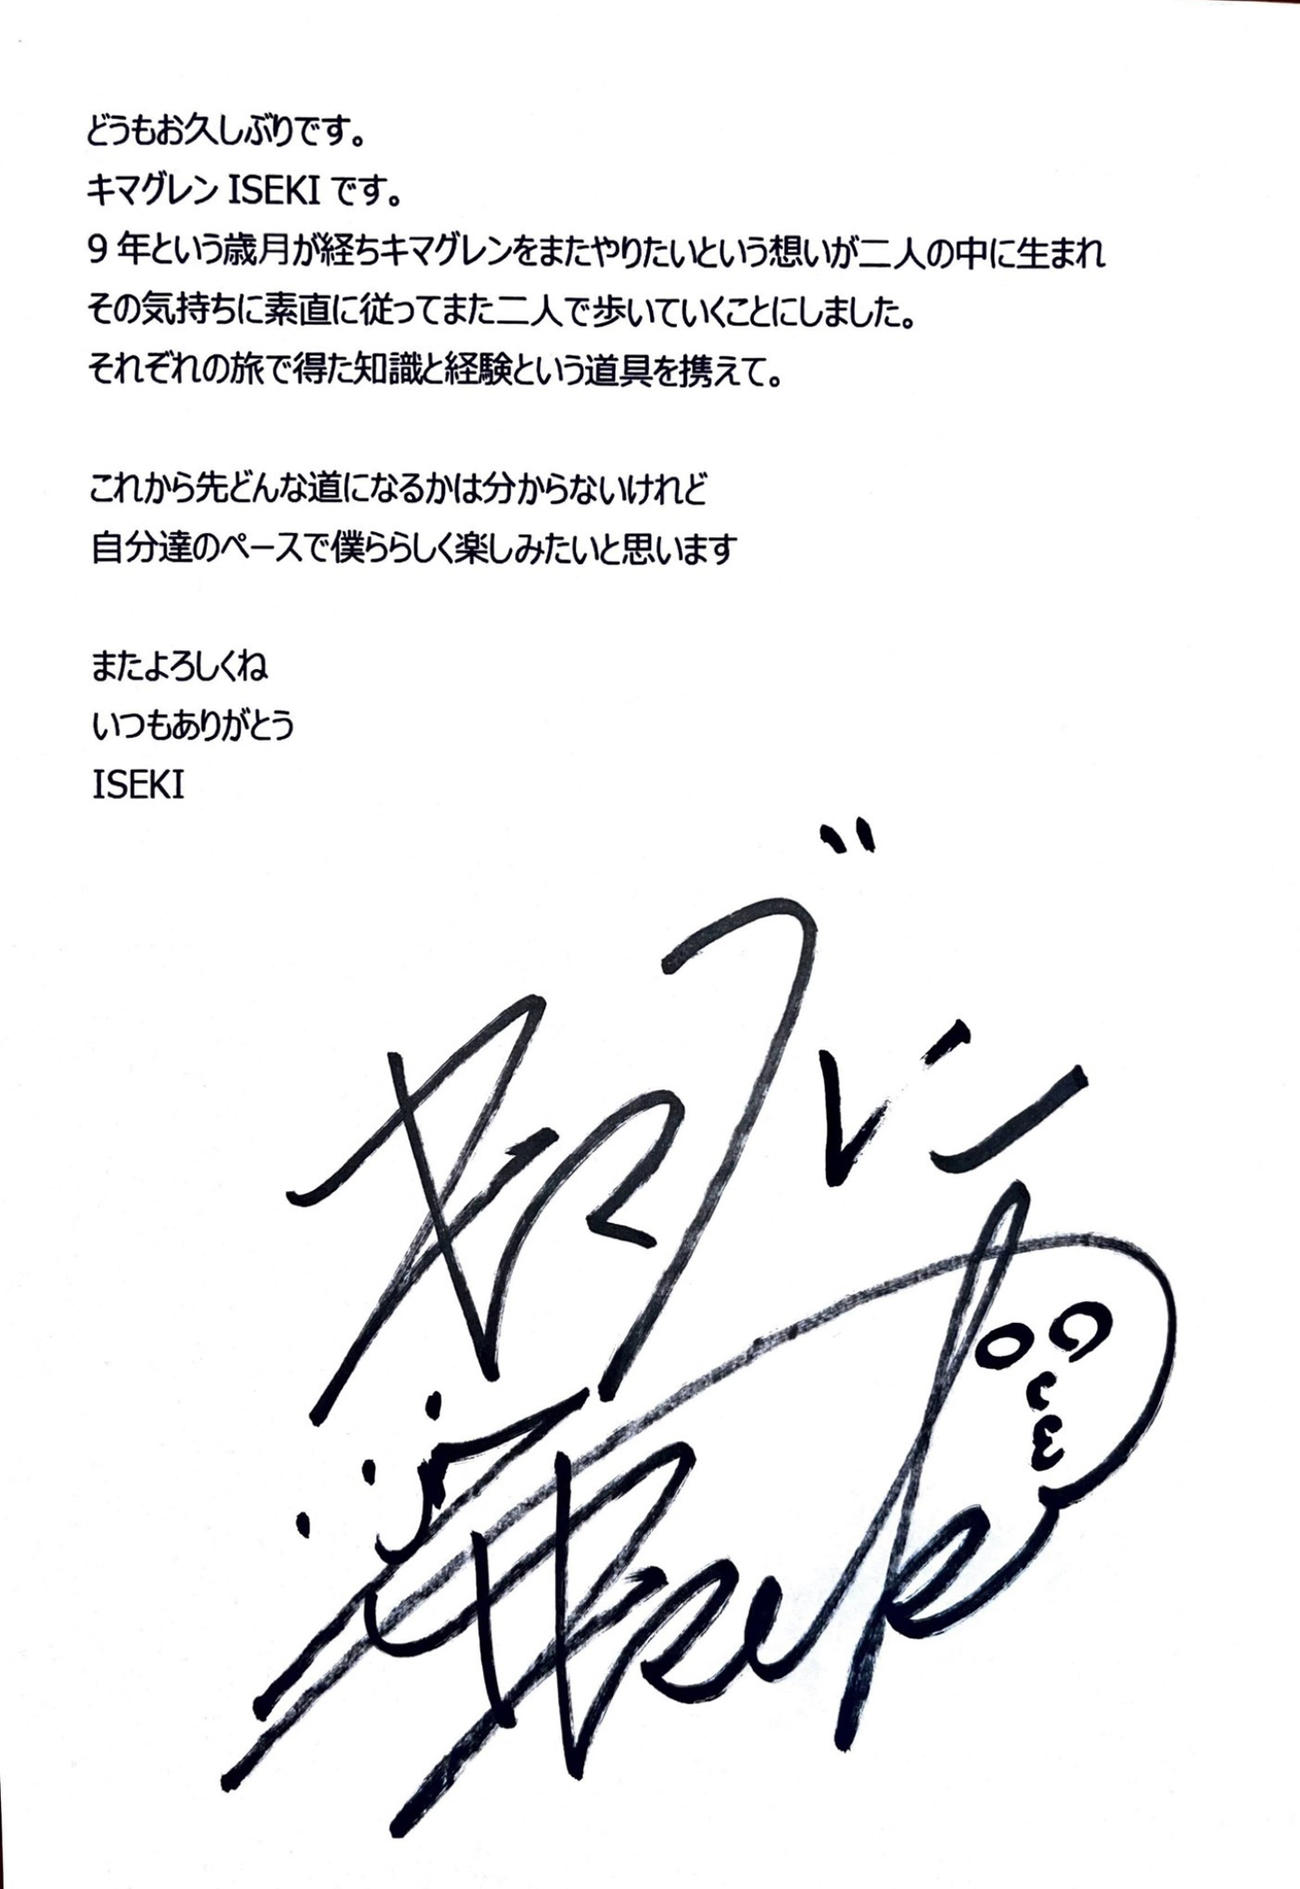 どうもお久しぶりです。
キマグレン ISEKI です。
9 年という歳月が経ちキマグレンをまたやりたいという想いが二人の中に生まれ
その気持ちに素直に従ってまた二人で歩いていくことにしました。
それぞれの旅で得た知識と経験という道具を携えて。
これから先どんな道になるかは分からないけれど
自分達のペースで僕ららしく楽しみたいと思います
またよろしくね
いつもありがとう
ISEKI
キマグレン